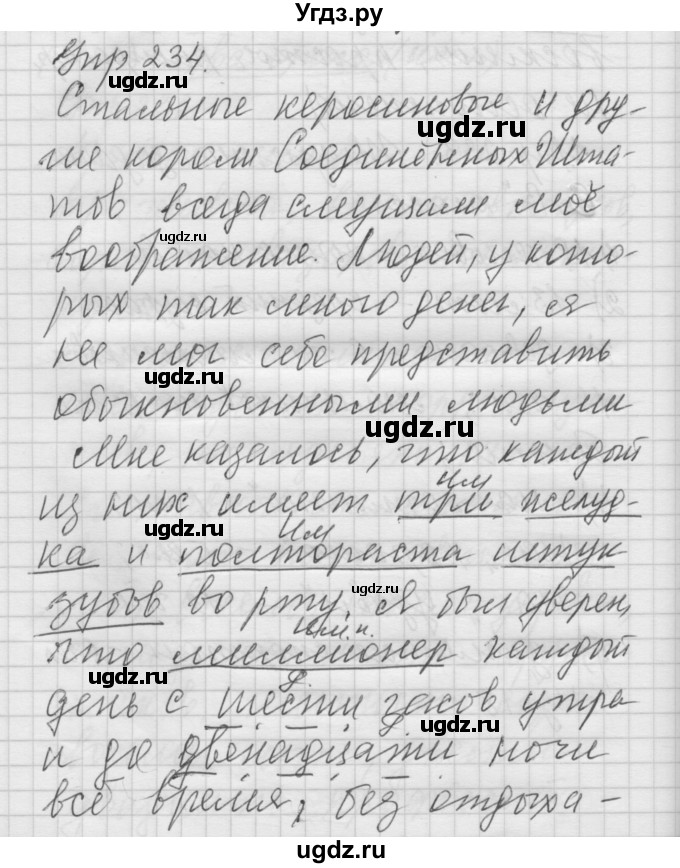 Угдз.ру
Упр 234.
ugdz.ru
Стальные керосиновые и дру-
ugdz.ru
гие короли Соединённых Шта-
тов всегда смущали моё
ugdz.ru
воображение. Людей, у кото-
рых так много денег, я
не мог себе представить
ugdz.ru
обыкновенными людьми
ugdz.ru
Мне казалось, что каждый
им
из них имеет три желуд-
им
ugdz.ru
ка и полтораста штук
ugdz.ru
зубов во рту. Я был уверен,
им.п.
что миллионер каждый
ugdz.ru
день с шести часов утра
ugdz.ru
и до двенадцати ночи
ugdz.ru
всё время, без отдыха-